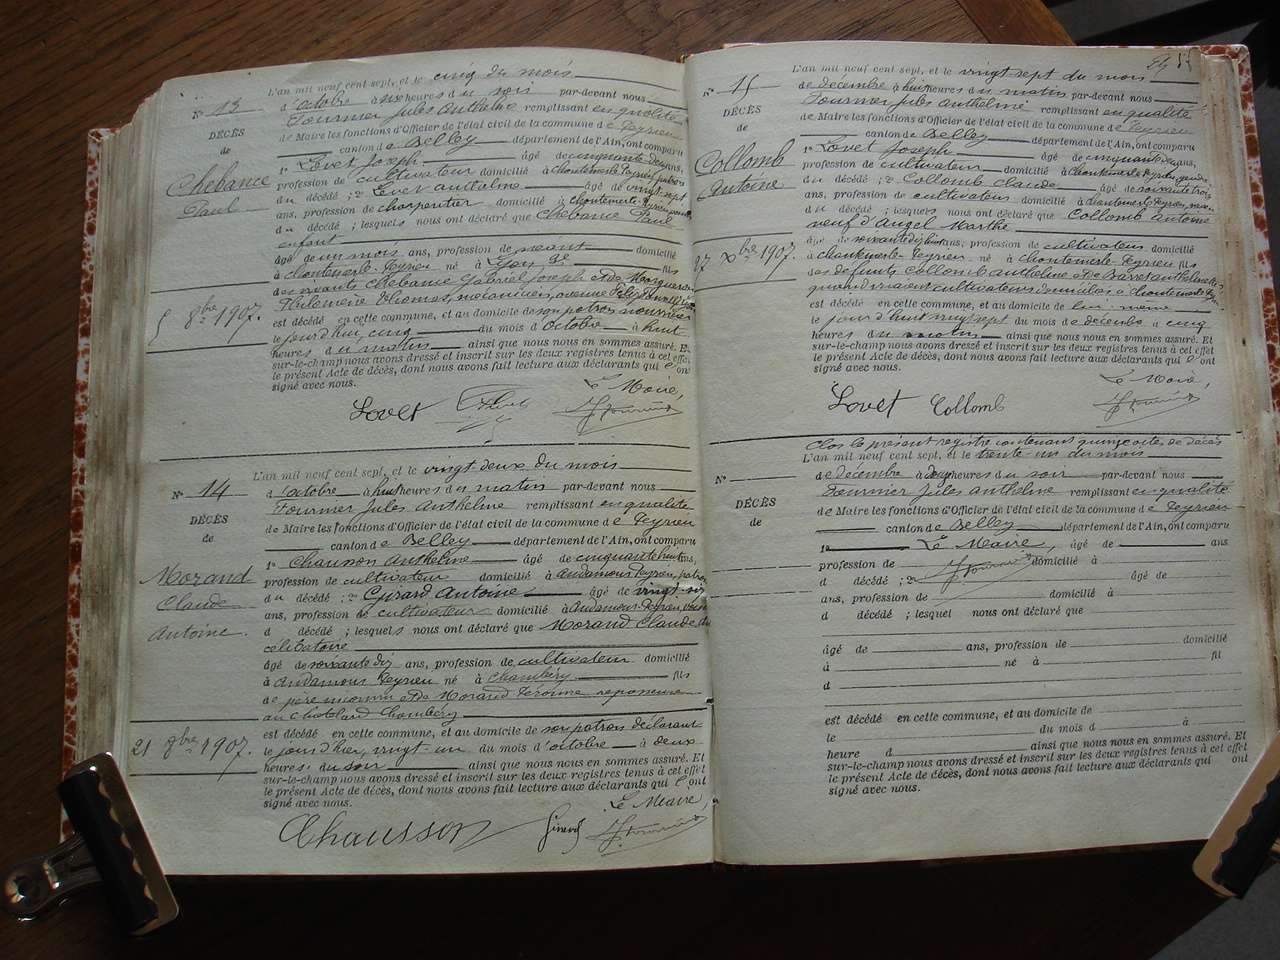 L'an mil neuf cent sept, et le cinq du mois
N° 13
d'octobre à heures du soir par-devant nous
Fournier Jules Anthelme remplissant en qualité
DÉCÈS
de Maire les fonctions d'Officier de l'état civil de la commune de Peyrieu
de
canton de Belley département de l'Ain, ont comparu
1° Lovet Joseph âgé de cinquante ans,
Chebance
profession de cultivateur domicilié à Chantemerle Peyrieu patron
Paul
du décédé ; 2° Lovet Anthelme âgé de vingt-sept
ans, profession de charpentier domicilié à Chantemerle-Peyrieu
du décédé ; lesquels nous ont déclaré que Chebance Paul
enfant
âgé de un mois ans, profession de néant domicilié
à Chantemerle-Peyrieu né à Lyon 3e fils
des vivants Chebance Gabriel Joseph et de
Philomène Thomas, mécanicien, avenue Félix
5 8bre 1907.
est décédé en cette commune, et au domicile de son patron nourricier
le jourd'hui cinq du mois d'octobre à huit
heures du matin ainsi que nous nous en sommes assuré. Et
sur-le-champ nous avons dressé et inscrit sur les deux registres tenus à cet effet
le présent Acte de décès, dont nous avons fait lecture aux déclarants qui l'ont
signé avec nous.
Le Maire,
Lovet
L'an mil neuf cent sept, et le vingt deux du mois
N° 14
d'octobre à huit heures du matin par-devant nous
Fournier Jules Anthelme remplissant en qualité
DÉCÈS
de Maire les fonctions d'Officier de l'état civil de la commune de Peyrieu
de
canton de Belley département de l'Ain, ont comparu
1° Chausson Anthelme âgé de cinquante huit ans,
Morand
profession de cultivateur domicilié à Andamous Peyrieu, patron
Claude
du décédé ; 2° Girard Antoine âgé de vingt-six
ans, profession de cultivateur domicilié à Andamous-Peyrieu, voisin
Antoine.
d décédé ; lesquels nous ont déclaré que Morand Claude
célibataire
âgé de soixante dix ans, profession de cultivateur domicilié
à Andamous Peyrieu né à Chambéry fils
de père inconnu et de Morand
au Chambéry
21 8bre 1907.
est décédé en cette commune, et au domicile de son patron déclarant
le jour d'hier, vingt-un du mois d'octobre à deux
heures du soir ainsi que nous nous en sommes assuré. Et
sur-le-champ nous avons dressé et inscrit sur les deux registres tenus à cet effet
le présent Acte de décès, dont nous avons fait lecture aux déclarants qui l'ont
signé avec nous.
Le Maire,
Chausson Girard
L'an mil neuf cent sept, et le vingt-sept du mois
N° 15
de décembre à huit heures du matin par-devant nous
Fournier Jules Anthelme remplissant en qualité
DÉCÈS
de Maire les fonctions d'Officier de l'état civil de la commune de Peyrieu
de
canton de Belley département de l'Ain, ont comparu
1° Lovet Joseph âgé de cinquante ans,
Collomb
profession de cultivateur domicilié à Chantemerle-Peyrieu, gendre
Antoine
du décédé ; 2° Collomb Claude âgé de soixante trois
ans, profession de cultivateur domicilié à Chantemerle Peyrieu,
du décédé ; lesquels nous ont déclaré que Collomb Antoine
veuf d'Angel Marthe
27 Xbre 1907.
âgé de soixante dix huit ans, profession de cultivateur domicilié
à Chantemerle-Peyrieu né à Chantemerle-Peyrieu fils
des défunts Collomb Anthelme et de
quand vivaient cultivateurs domiciliés à Chantemerle
est décédé en cette commune, et au domicile de lui-même
le jourd'hui vingt-sept du mois de décembre à cinq
heures du matin ainsi que nous nous en sommes assuré. Et
sur-le-champ nous avons dressé et inscrit sur les deux registres tenus à cet effet
le présent Acte de décès, dont nous avons fait lecture aux déclarants qui l'ont
signé avec nous.
Le Maire,
Lovet Collomb
Clos le présent registre contenant quinze actes de décès
L'an mil neuf cent sept, et le trente-un du mois
N°
de décembre à heures du soir par-devant nous
Fournier Jules Anthelme remplissant en qualité
DÉCÈS
de Maire les fonctions d'Officier de l'état civil de la commune de Peyrieu
de
canton de Belley département de l'Ain, ont comparu
1° Le Maire, âgé de ans
d décédé ; 2° domicilié à
âgé de
ans, profession de domicilié à
d décédé ; lesquel nous ont déclaré que
âgé de ans, profession de domicilié
à né à fil
d
est décédé en cette commune, et au domicile de
le du mois d à
heure d ainsi que nous nous en sommes assuré. Et
sur-le-champ nous avons dressé et inscrit sur les deux registres tenus à cet effet
le présent Acte de décès, dont nous avons fait lecture aux déclarants qui ont
signé avec nous.